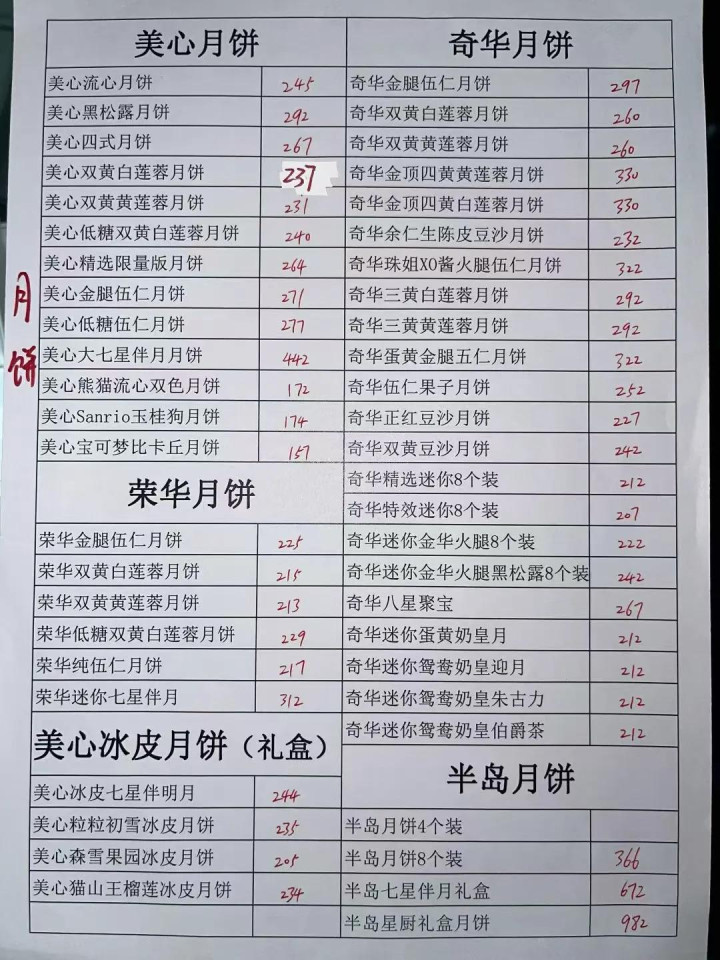 月饼
美心月饼
美心流心月饼 245
美心黑松露月饼 292
美心四式月饼 267
美心双黄白莲蓉月饼 237
美心双黄黄莲蓉月饼 231
美心低糖双黄白莲蓉月饼 240
美心精选限量版月饼 264
美心金腿伍仁月饼 271
美心低糖伍仁月饼 277
美心大七星伴月月饼 442
美心熊猫流心双色月饼 172
美心Sanrio玉桂狗月饼 174
美心宝可梦比卡丘月饼 157
荣华月饼
荣华金腿伍仁月饼 225
荣华双黄白莲蓉月饼 215
荣华双黄黄莲蓉月饼 213
荣华低糖双黄白莲蓉月饼 229
荣华纯伍仁月饼 217
荣华迷你七星伴月 312
美心冰皮月饼（礼盒）
美心冰皮七星伴明月 244
美心粒粒初雪冰皮月饼 235
美心森雪果园冰皮月饼 205
美心猫山王榴莲冰皮月饼 234
奇华月饼
奇华金腿伍仁月饼 297
奇华双黄白莲蓉月饼 260
奇华双黄黄莲蓉月饼 260
奇华金顶四黄黄莲蓉月饼 330
奇华金顶四黄白莲蓉月饼 330
奇华余仁生陈皮豆沙月饼 232
奇华珠姐XO酱火腿伍仁月饼 322
奇华三黄白莲蓉月饼 292
奇华三黄黄莲蓉月饼 292
奇华蛋黄金腿五仁月饼 322
奇华伍仁果子月饼 252
奇华正红豆沙月饼 227
奇华双黄豆沙月饼 242
奇华精选迷你8个装 212
奇华特效迷你8个装 207
奇华迷你金华火腿8个装 222
奇华迷你金华火腿黑松露8个装 242
奇华八星聚宝 267
奇华迷你蛋黄奶皇月 212
奇华迷你鸳鸯奶皇迎月 212
奇华迷你鸳鸯奶皇朱古力 212
奇华迷你鸳鸯奶皇伯爵茶 212
半岛月饼
半岛月饼4个装
半岛月饼8个装 366
半岛七星伴月礼盒 672
半岛星厨礼盒月饼 982